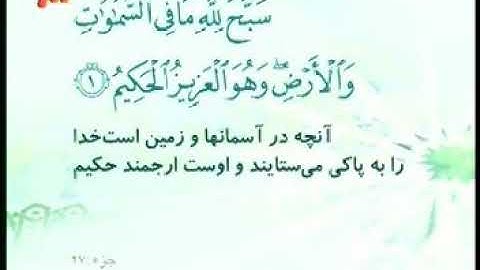 سَبَّحَ لِلَّهِ مَا فِي السَّمَٰوَٰتِ
وَالْأَرْضِ ۖ وَهُوَ الْعَزِيزُ الْحَكِيمُ ﴿١﴾
آنچه در آسمانها و زمین است‌خدا
را به پاکی می‌ستایند و اوست ارجمند حکیم
جزء: ۲۷